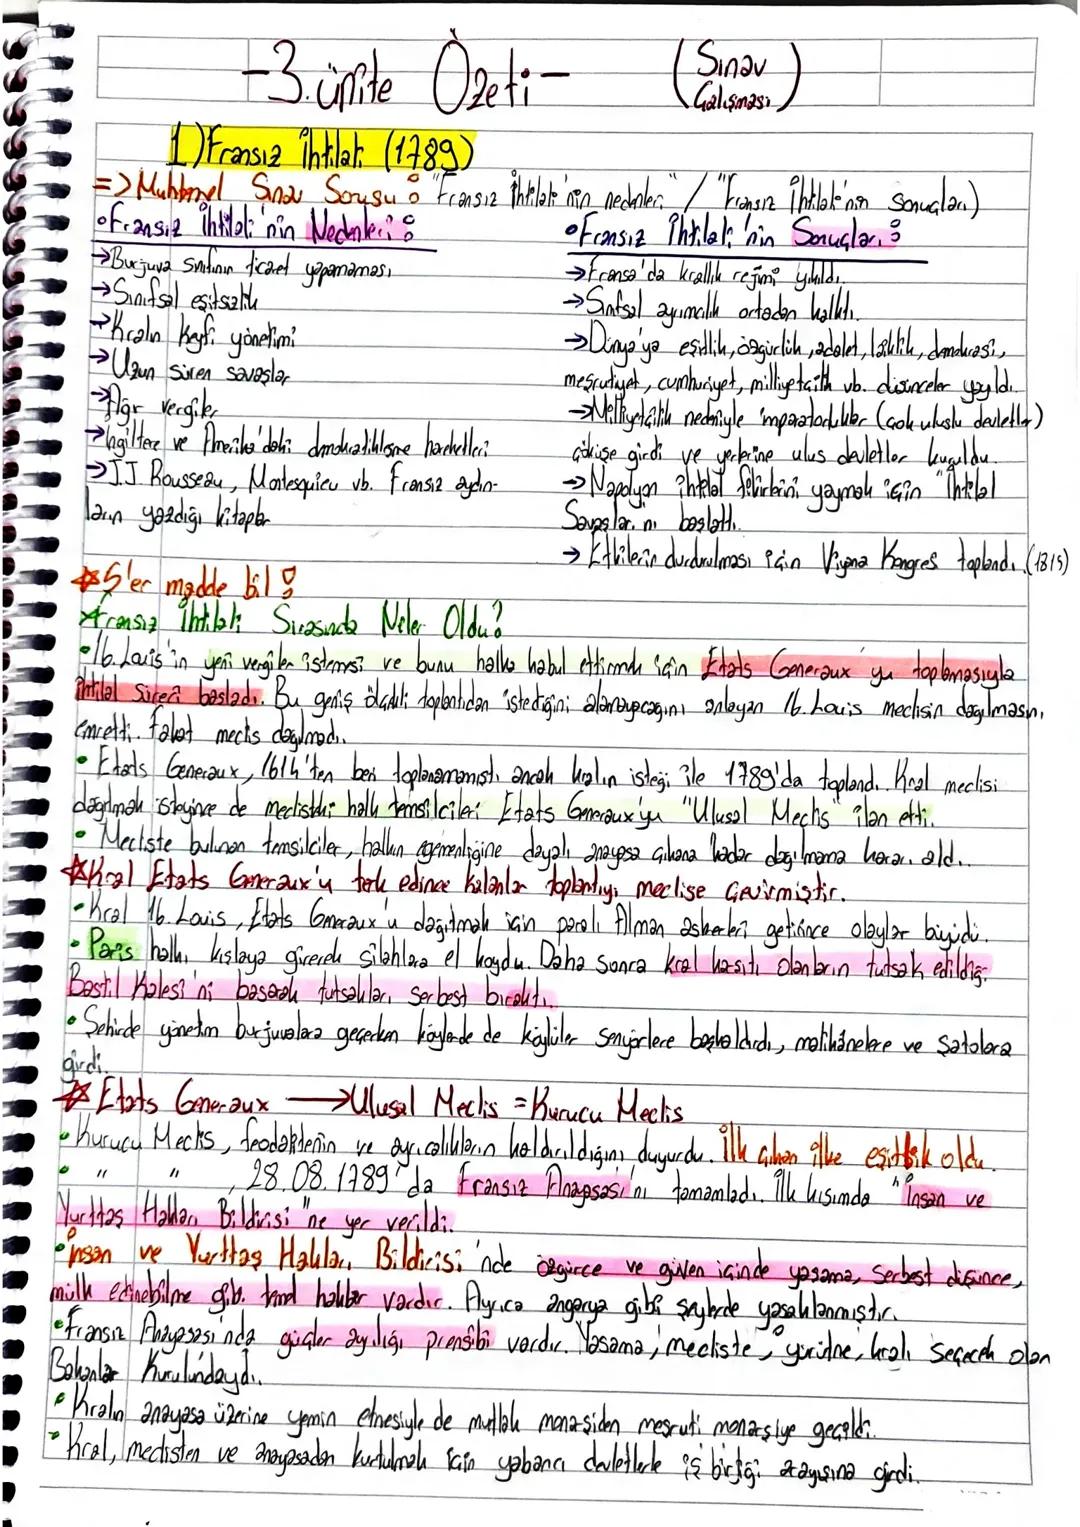 -3. ünite Özeti-
(Sınav Çalışması)
1) Fransız İhtilali (1789)
=> Muhtemel Sınav Sorusu: "Fransız İhtilali'nin nedenleri" / "Fransız İhtilali'nin sonuçları)
• Fransız İhtilali'nin Nedenleri:
→ Burjuva sınıfının ticaret yapamaması
→ Sınıfsal eşitsizlik
→ Kralın keyfi yönetimi
→ Uzun süren savaşlar
→ Ağır vergiler
→ İngiltere ve Amerika'daki demokratikleşme hareketleri
→ J.J. Rousseau, Montesquieu vb. Fransız aydın-
ların yazdığı kitaplar
• Fransız İhtilali'nin Sonuçları:
→ Fransa'da krallık rejimi yıkıldı.
→ Sınıfsal ayrımcılık ortadan kalktı.
→ Dünya'ya eşitlik, özgürlük, adalet, laiklik, demokrasi,
meşrutiyet, cumhuriyet, milliyetçilik vb. düşünceler yayıldı.
→ Milliyetçilik nedeniyle imparatorluklar (çok uluslu devletler)
çöküşe girdi ve yerlerine ulus devletler kuruldu.
→ Napolyon ihtilal fikirlerini yaymak için "İhtilal
Savaşları"nı başlattı.
→ Etkilerin durdurulması için Viyana Kongresi toplandı. (1815)
☆ 5'er madde bil!
* Fransız İhtilali Sırasında Neler Oldu?
• 16. Louis'in yeni vergiler istemesi ve bunu halka kabul ettirmek için Etats Generaux'yu toplamasıyla
ihtilal süreci başladı. Bu geniş ölçekli toplantıdan istediğini alamayacağını anlayan 16. Louis meclisin dağılmasını
emretti. Fakat meclis dağılmadı.
• Etats Generaux, 1614'ten beri toplanamamıştı ancak kralın isteği ile 1789'da toplandı. Kral meclisi
dağıtmak isteyince de meclisteki halk temsilcileri Etats Generaux'yu "Ulusal Meclis" ilan etti.
• Mecliste bulunan temsilciler, halkın egemenliğine dayalı anayasa çıkana kadar dağılmama kararı aldı.
☆ Kral Etats Generaux'u terk edince kalanlar toplantıyı meclise çevirmiştir.
• Kral 16. Louis, Etats Generaux'u dağıtmak için paralı Alman askerleri getirince olaylar büyüdü.
• Paris halkı kışlaya girerek silahlara el koydu. Daha sonra kral karşıtı olanların tutsak edildiği
Bastil Kalesi'ni basarak tutsakları serbest bıraktı.
• Şehirde yönetim burjuvalara geçerken köylerde de köylüler senyörlere başkaldırdı, malikânelere ve şatolara
girdi.
☆ Etats Generaux → Ulusal Meclis = Kurucu Meclis
• Kurucu Meclis, feodalitenin ve ayrıcalıkların kaldırıldığını duyurdu. İlk çıkan ilke eşitlik oldu.
• " " , 28.08.1789'da Fransız Anayasası'nı tamamladı. İlk kısımda "İnsan ve
Yurttaş Hakları Bildirisi"ne yer verildi.
• İnsan ve Yurttaş Hakları Bildirisi'nde özgürce ve güven içinde yaşama, serbest düşünce,
mülk edinebilme gibi temel haklar vardır. Ayrıca angarya gibi şeyler de yasaklanmıştır.
• Fransız Anayasası'nda güçler ayrılığı prensibi vardır. Yasama, mecliste; yürütme, kralı seçecek olan
Bakanlar Kurulundaydı.
• Kralın anayasa üzerine yemin etmesiyle de mutlak monarşiden meşruti monarşiye geçildi.
• Kral, meclisten ve anayasadan kurtulmak için yabancı devletlerle iş birliği arayışına girdi.